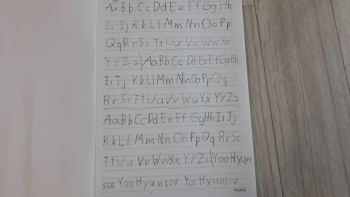 Aa Bb Cc Dd Ee Ff Gg Hh
Ii Jj Kk Ll Mm Nn Oo Pp
Qq Rr Ss Tt Uu Vv Ww Xx
Yy Zz Aa Bb Cc Dd Ee Ff Gg Hh
Ii Jj Kk Ll Mm Nn Oo Pp Qq
Rr Ss Tt Uu Vv Ww Xx Yy Zz
Aa Bb Cc Dd Ee Ff Gg Hh Ii Jj
Kk Ll Mm Nn Oo Pp Qq Rr Ss
Tt Uu Vv Ww Xx Yy Zz Yoo Hyun
soo Yoo Hyunsoo Yoo Hyunsoo